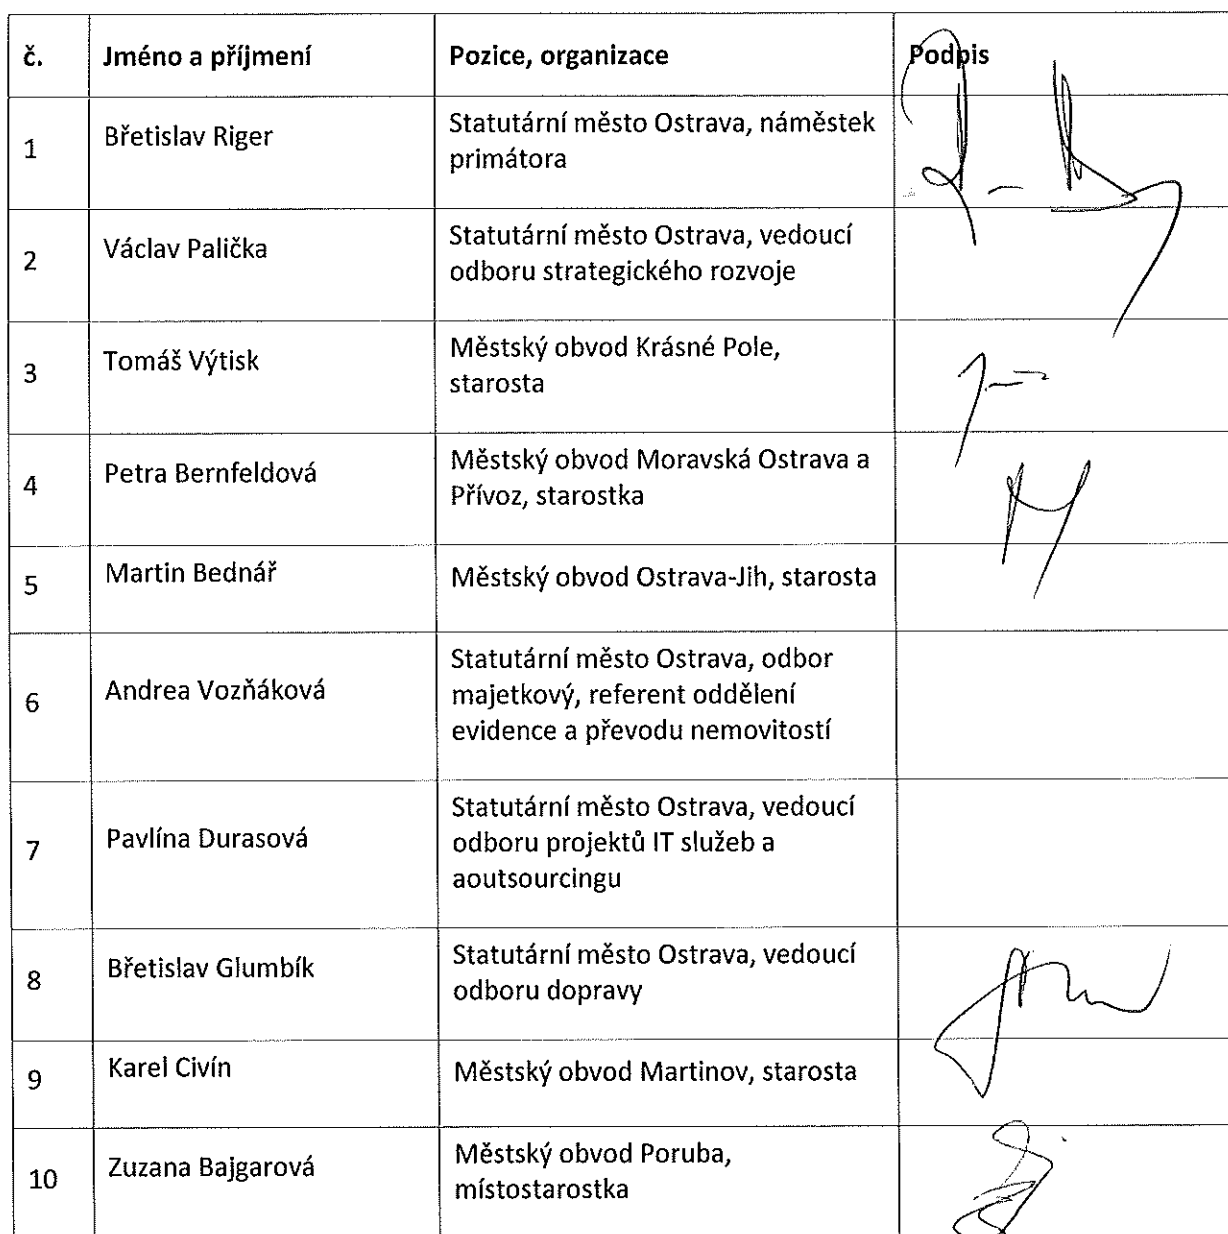 č. Jméno a příjmení Pozice, organizace Podpis
1 Břetislav Riger Statutární město Ostrava, náměstek
primátora
2 Václav Palička Statutární město Ostrava, vedoucí
odboru strategického rozvoje
3 Tomáš Výtisk Městský obvod Krásné Pole,
starosta
4 Petra Bernfeldová Městský obvod Moravská Ostrava a
Přívoz, starostka
5 Martin Bednář Městský obvod Ostrava-Jih, starosta
6 Andrea Vozňáková Statutární město Ostrava, odbor
majetkový, referent oddělení
evidence a převodu nemovitostí
7 Pavlína Durasová Statutární město Ostrava, vedoucí
odboru projektů IT služeb a
aoutsourcingu
8 Břetislav Glumbík Statutární město Ostrava, vedoucí
odboru dopravy
9 Karel Civín Městský obvod Martinov, starosta
10 Zuzana Bajgarová Městský obvod Poruba,
místostarostka